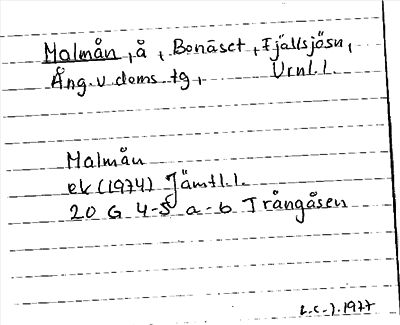 Malmån, å, Bonäset, Fjällsjösn,
Ång. v doms tg, Vrnl.l.
Malmån
ek (1974) Jämtl.l.
20 G 4-5 a-b Trångåsen
1977